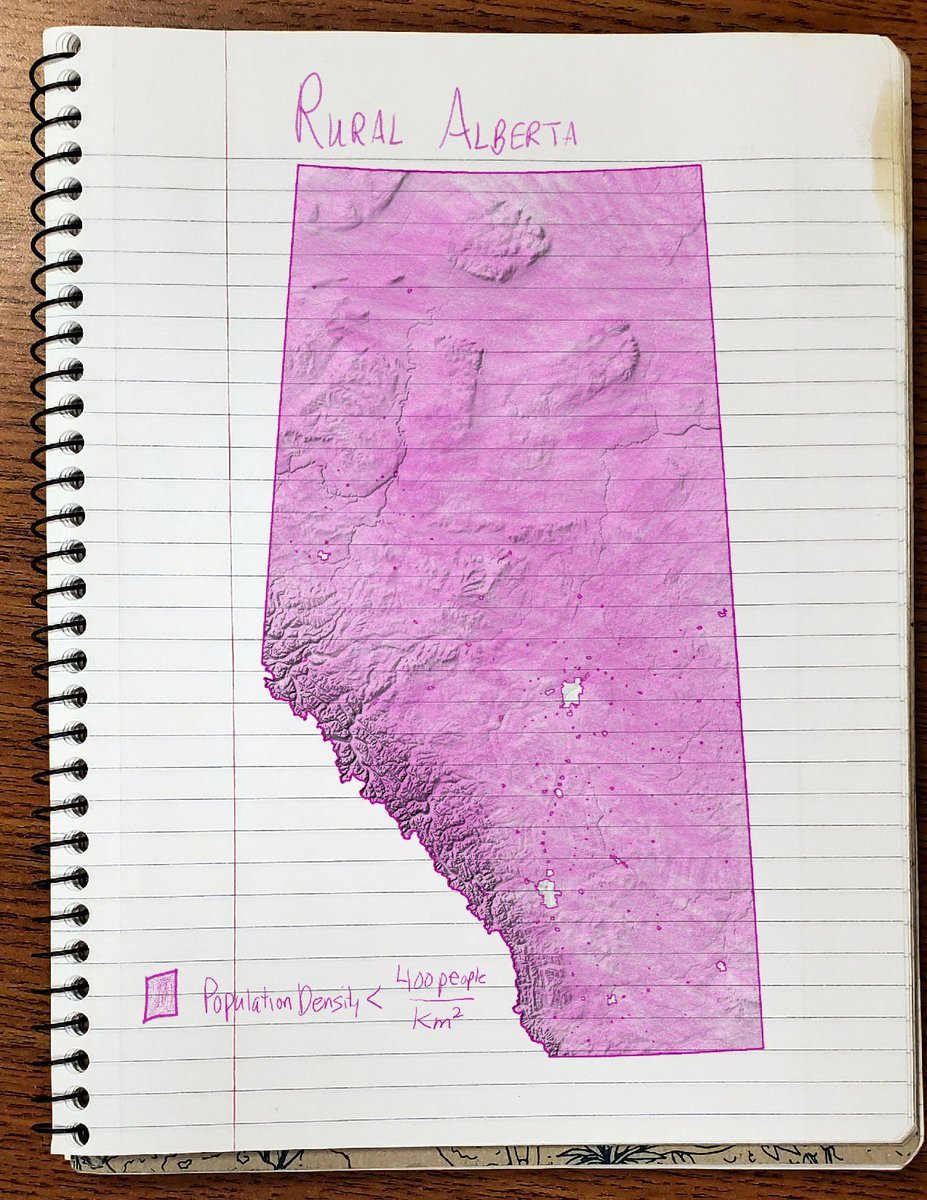 RURAL ALBERTA
POPULATION DENSITY < 400 people
Km²